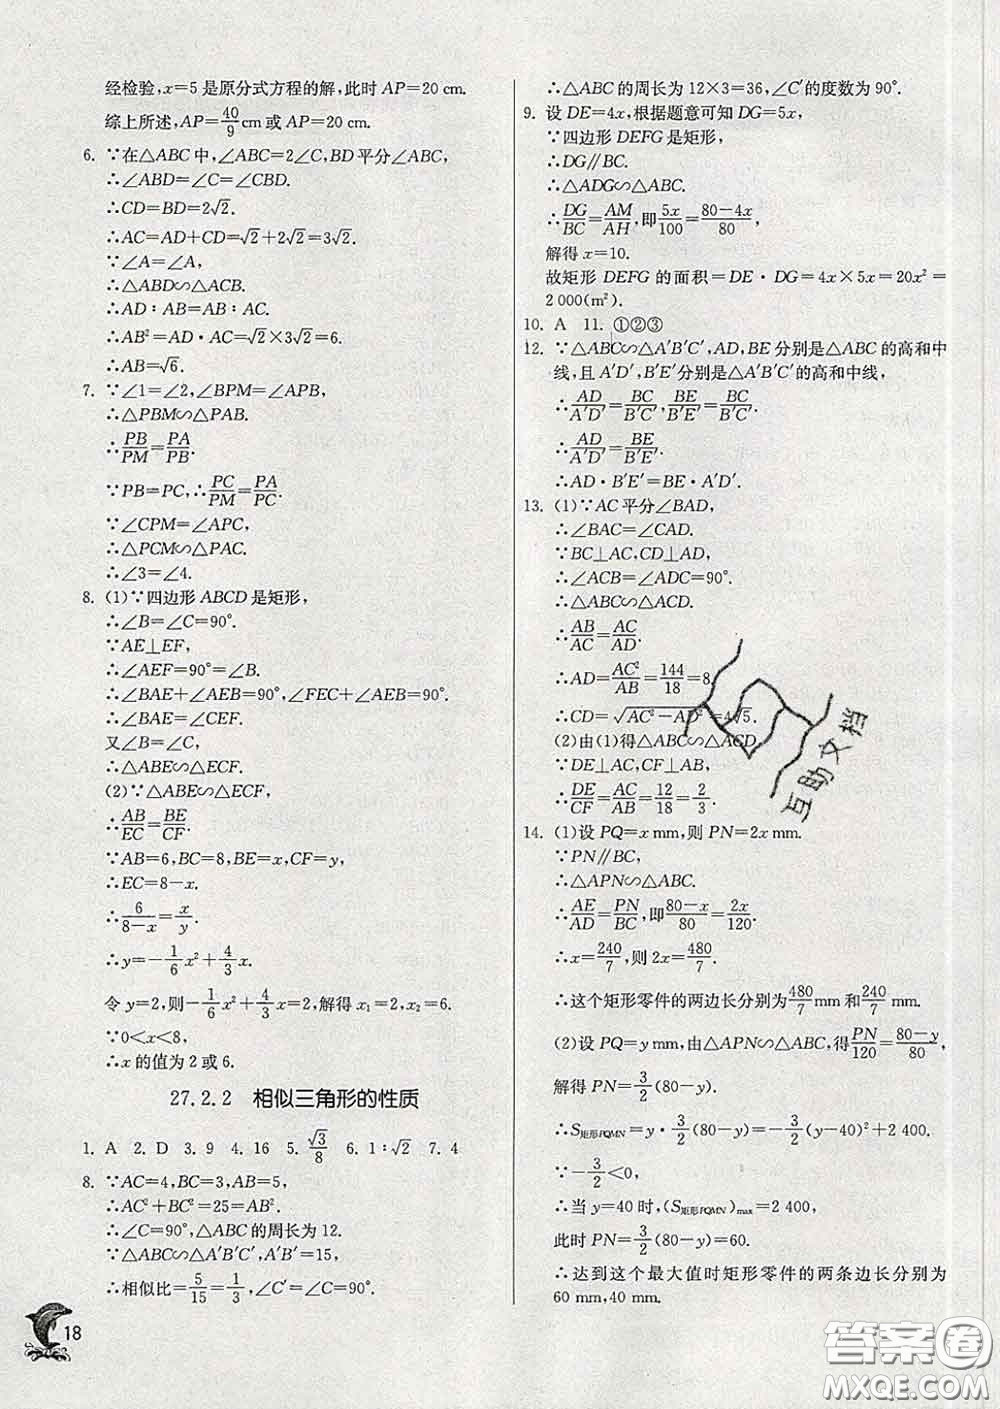 经检验,x=5是原分式方程的解,此时AP=20 cm.
综上所述,AP=40/9 cm或AP=20 cm.
6. ∵在△ABC中,∠ABC=2∠C,BD平分∠ABC,
∴∠ABD=∠C=∠CBD.
∴CD=BD=2√2.
∴AC=AD+CD=√2+2√2=3√2.
∵∠A=∠A,
∴△ABD∽△ACB.
∴AD∶AB=AB∶AC.
∴AB²=AD·AC=√2×3√2=6.
∴AB=√6.
7. ∵∠1=∠2,∠BPM=∠APB,
∴△PBM∽△PAB.
∴PB/PM=PA/PB.
∵PB=PC,∴PC/PM=PA/PC.
∵∠CPM=∠APC,
∴△PCM∽△PAC.
∴∠3=∠4.
8. (1)∵四边形ABCD是矩形,
∴∠B=∠C=90°.
∵AE⊥EF,
∴∠AEF=90°=∠B.
∴∠BAE+∠AEB=90°,∠FEC+∠AEB=90°.
∴∠BAE=∠CEF.
又∠B=∠C,
∴△ABE∽△ECF.
(2)∵△ABE∽△ECF,
∴AB/EC=BE/CF.
∵AB=6,BC=8,BE=x,CF=y,
∴EC=8-x.
∴6/(8-x)=x/y.
∴y=-1/6x²+4/3x.
令y=2,则-1/6x²+4/3x=2,解得x₁=2,x₂=6.
∵0<x<8,
∴x的值为2或6.
27.2.2 相似三角形的性质
1. A 2. D 3. 9 4. 16 5. √3/8 6. 1∶√2 7. 4
8. ∵AC=4,BC=3,AB=5,
∴AC²+BC²=25=AB².
∴∠C=90°,△ABC的周长为12.
∵△ABC∽△A′B′C′,A′B′=15,
∴相似比=5/15=1/3,∠C′=∠C=90°.
18
∴△ABC的周长为12×3=36,∠C′的度数为90°.
9. 设DE=4x,根据题意可知DG=5x,
∵四边形DEFG是矩形,
∴DG∥BC.
∴△ADG∽△ABC.
∴DG/BC=AM/AH,即5x/100=(80-4x)/80,
解得x=10.
故矩形DEFG的面积=DE·DG=4x×5x=20x²=
2 000(m²).
10. A 11. ①②③
12. ∵△ABC∽△A′B′C′,AD,BE分别是△ABC的高和中
线,且A′D′,B′E′分别是△A′B′C′的高和中线,
∴AD/A′D′=BC/B′C′,BE/B′E′=BC/B′C′.
∴AD/A′D′=BE/B′E′.
∴AD·B′E′=BE·A′D′.
13. (1)∵AC平分∠BAD,
∴∠BAC=∠CAD.
∵BC⊥AC,CD⊥AD,
∴∠ACB=∠ADC=90°.
∴△ABC∽△ACD.
∴AB/AC=AC/AD.
∴AD=AC²/AB=144/18=8.
∴CD=√(AC²-AD²)=4√5.
(2)由(1)得△ABC∽△ACD.
∵DE⊥AC,CF⊥AB,
∴DE/CF=AC/AB=12/18=2/3.
14. (1)设PQ=x mm,则PN=2x mm.
∵PN∥BC,
∴△APN∽△ABC.
∴AE/AD=PN/BC,即(80-x)/80=2x/120.
∴x=240/7,则2x=480/7.
∴这个矩形零件的两边长分别为480/7 mm和240/7 mm.
(2)设PQ=y mm,由△APN∽△ABC,得PN/120=(80-y)/80,
解得PN=3/2(80-y).
∴S矩形PQMN=y·3/2(80-y)=-3/2(y-40)²+2 400.
∵-3/2<0,
∴当y=40时,(S矩形PQMN)max=2 400,
此时PN=3/2(80-y)=60.
∴达到这个最大值时矩形零件的两条边长分别为
60 mm,40 mm.
互助文档
答案圈
MXQE.COM